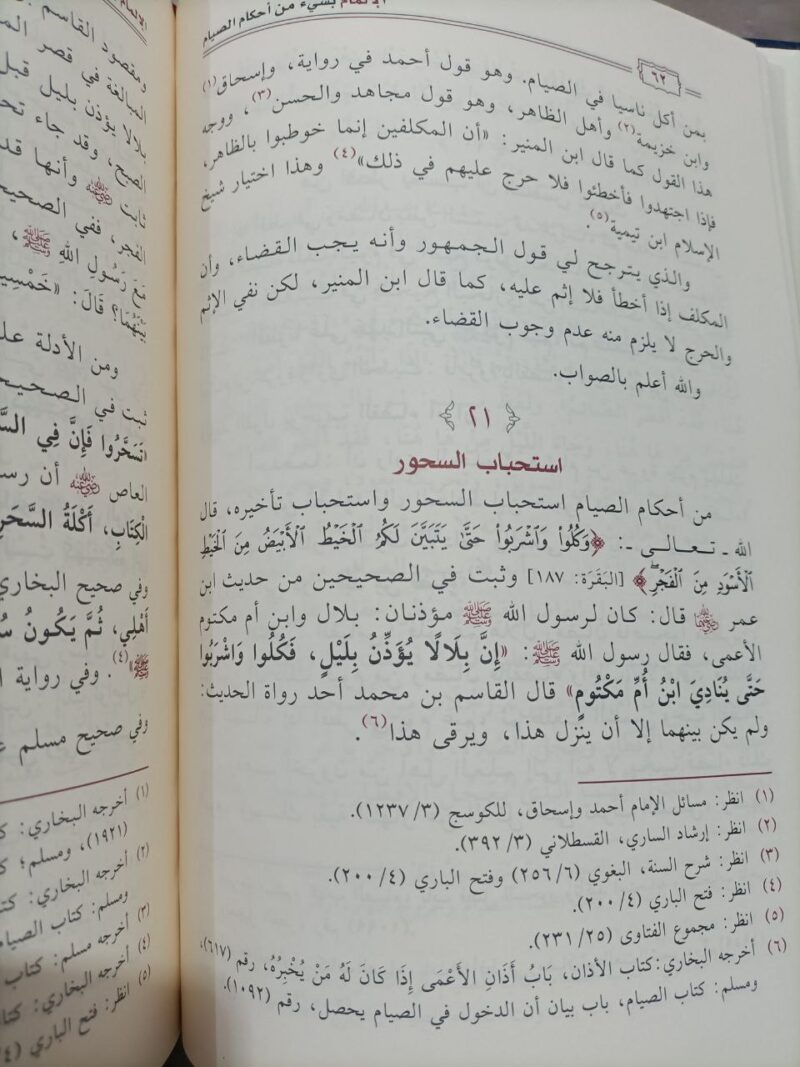 الإلمام بشيء من أحكام الصيام
٦٢
بمن أكل ناسيا في الصيام. وهو قول أحمد في رواية، وإسحاق(١)
وابن خزيمة(٢) وأهل الظاهر، وهو قول مجاهد والحسن(٣)، ووجه
هذا القول كما قال ابن المنير: «أن المكلفين إنما خوطبوا بالظاهر،
فإذا اجتهدوا فأخطئوا فلا حرج عليهم في ذلك»(٤) وهذا اختيار شيخ
الإسلام ابن تيمية(٥).
والذي يترجح لي قول الجمهور وأنه يجب القضاء، وأن
المكلف إذا أخطأ فلا إثم عليه، كما قال ابن المنير، لكن نفي الإثم
والحرج لا يلزم منه عدم وجوب القضاء.
والله أعلم بالصواب.
٢١
استحباب السحور
من أحكام الصيام استحباب السحور واستحباب تأخيره، قال
الله ـ تعالى ـ: ﴿وَكُلُوا۟ وَٱشْرَبُوا۟ حَتَّىٰ يَتَبَيَّنَ لَكُمُ ٱلْخَيْطُ ٱلْأَبْيَضُ مِنَ ٱلْخَيْطِ
ٱلْأَسْوَدِ مِنَ ٱلْفَجْرِ﴾ [البَقَرَة: ١٨٧] وثبت في الصحيحين من حديث ابن
عمر رضي الله عنهما قال: كان لرسول الله ﷺ مؤذنان: بلال وابن أم مكتوم
الأعمى، فقال رسول الله ﷺ: «إِنَّ بِلَالًا يُؤَذِّنُ بِلَيْلٍ، فَكُلُوا وَاشْرَبُوا
حَتَّى يُنَادِيَ ابْنُ أُمِّ مَكْتُومٍ» قال القاسم بن محمد أحد رواة الحديث:
ولم يكن بينهما إلا أن ينزل هذا، ويرقى هذا(٦).
(١) انظر: مسائل الإمام أحمد وإسحاق، للكوسج (٣/ ١٢٣٧).
(٢) انظر: إرشاد الساري، القسطلاني (٣/ ٣٩٢).
(٣) انظر: شرح السنة، البغوي (٦/ ٢٥٦) وفتح الباري (٤/ ٢٠٠).
(٤) انظر: فتح الباري (٤/ ٢٠٠).
(٥) انظر: مجموع الفتاوى (٢٥/ ٢٣١).
(٦) أخرجه البخاري: كتاب الأذان، بَابُ أَذَانِ الأَعْمَى إِذَا كَانَ لَهُ مَنْ يُخْبِرُهُ، رقم (٦١٧)،
ومسلم: كتاب الصيام، باب بيان أن الدخول في الصيام يحصل، رقم (١٠٩٢).
ومقصود القاسم
المبالغة في قصر
بلالا يؤذن بليل قبل
الصبح، وقد جاء
ثابت رضي الله عنه وأنها
الفجر، ففي
مَعَ رَسُولِ اللهِ ﷺ،
بَيْنَهُمَا؟ قَالَ: «خَمْسِينَ
ومن الأدلة
ثبت في
تَسَحَّرُوا فَإِنَّ فِي
العاص رضي الله عنه أن
الْكِتَابِ، أَكْلَةُ السَّحَرِ
وفي صحيح البخاري
أَهْلِي، ثُمَّ يَكُونُ
ﷺ»(٤). وفي رواية
وفي صحيح مسلم
(١) أخرجه البخاري:
(١٩٢١)، ومسلم:
(٢) أخرجه البخاري:
ومسلم: كتاب الصيام
(٣) أخرجه مسلم: كتاب
(٤) أخرجه البخاري:
(٥) انظر: فتح الباري (٤/